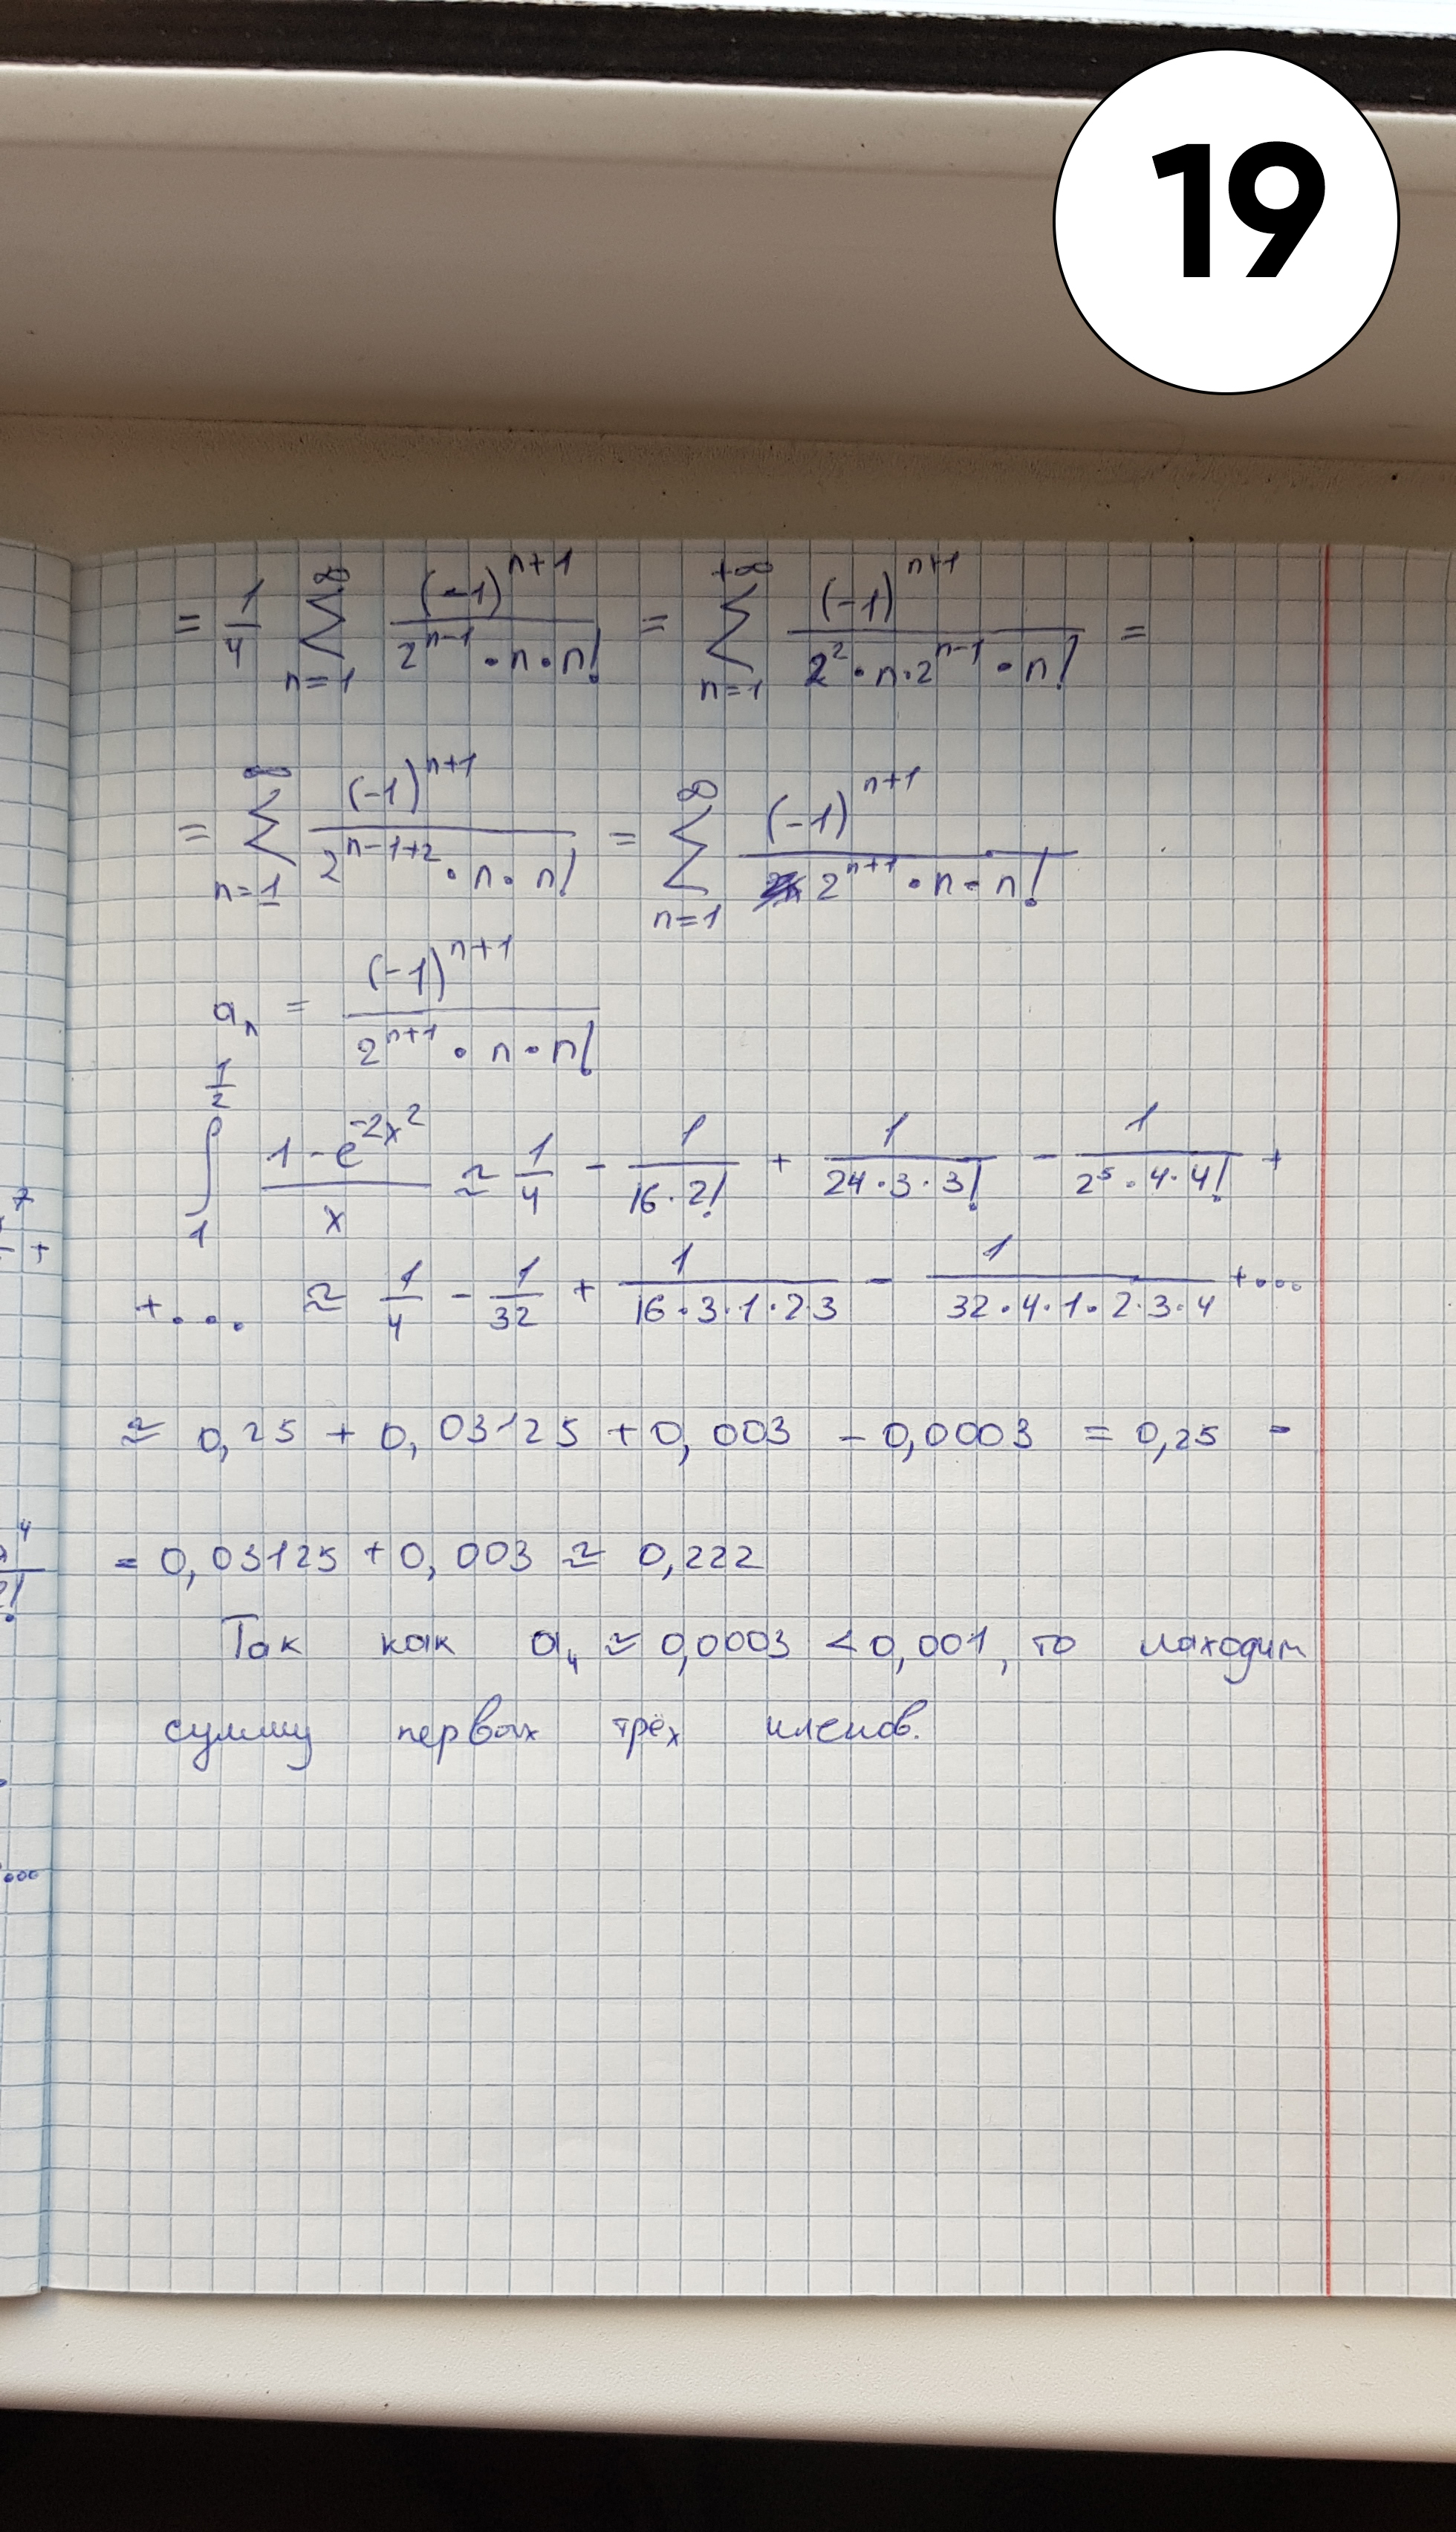 19
= 1/4 ∑_{n=1}^{∞} (-1)^{n+1} / (2^{n-1} · n · n!) = ∑_{n=1}^{+∞} (-1)^{n+1} / (2² · n · 2^{n-1} · n!) =
= ∑_{n=1}^{∞} (-1)^{n+1} / (2^{n-1+2} · n · n!) = ∑_{n=1}^{∞} (-1)^{n+1} / (2^{n+1} · n · n!)
a_n = (-1)^{n+1} / (2^{n+1} · n · n!)
∫_{1}^{1/2} (1 - e^{-2x²}) / x ≈ 1/4 - 1/(16 · 2!) + 1/(24 · 3 · 3!) - 1/(2⁵ · 4 · 4!) +
+... ≈ 1/4 - 1/32 + 1/(16 · 3 · 1 · 2 · 3) - 1/(32 · 4 · 1 · 2 · 3 · 4) + ...
≈ 0,25 + 0,03125 + 0,003 - 0,0003 = 0,25 -
= 0,03125 + 0,003 ≈ 0,222
Так как a₄ ≈ 0,0003 < 0,001, то находим
сумму первых трёх членов.